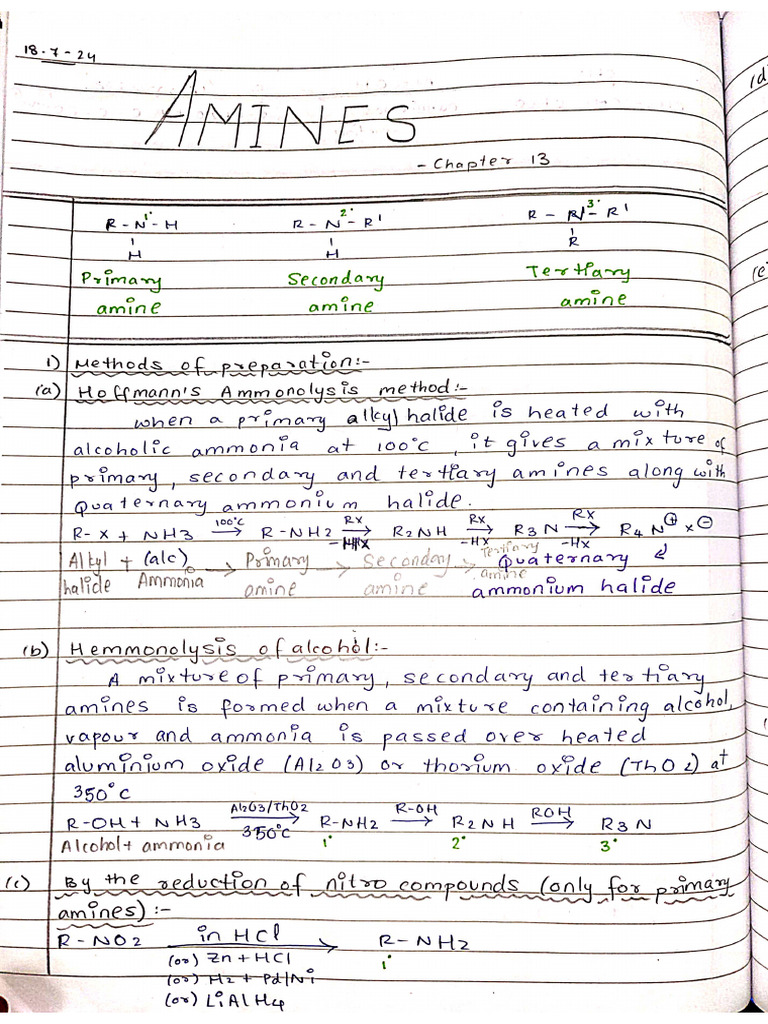 18-7-24
AMINES
- Chapter 13
R-N-H R-N-R' R-N-R'
1° 2° 3°
H H R
Primary Secondary Tertiary
amine amine amine
1) Methods of preparation:-
(a) Hoffmann's Ammonolysis method:-
when a primary alkyl halide is heated with
alcoholic ammonia at 100°C, it gives a mixture of
primary, secondary and tertiary amines along with
quaternary ammonium halide.
R-X + NH3 100°C → R-NH2 RX → -HX R2NH RX → -HX R3N RX → -HX R4N⊕X⊖
Alkyl + (alc) → Primary → Secondary → Tertiary Quaternary
halide Ammonia amine amine amine ammonium halide
(b) Hemmonolysis of alcohol:-
A mixture of primary, secondary and tertiary
amines is formed when a mixture containing alcohol,
vapour and ammonia is passed over heated
aluminium oxide (Al2O3) or thorium oxide (ThO2) at
350°C
R-OH + NH3 Al2O3/ThO2 → 350°C R-NH2 R-OH → R2NH ROH → R3N
Alcohol + ammonia 1° 2° 3°
(c) By the reduction of nitro compounds (only for primary
amines):-
R-NO2 in HCl → R-NH2
(or) Zn + HCl 1°
(or) H2 + Pd/Ni
(or) LiAlH4
(d
(e